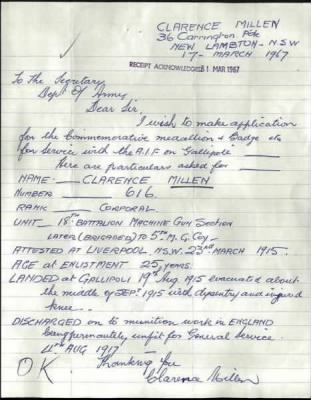 CLARENCE MILLEN
36 Carrington Pde
NEW LAMBTON - NSW
17 - MARCH 1967
RECEIPT ACKNOWLEDGED 31 MAR 1967
To The Secretary
Dept Of Army
Dear Sir,
I wish to make application
for the Commemorative medallion & Badge etc
for service with the A.I.F on Gallipoli
Here are particulars asked for
NAME- CLARENCE MILLEN
NUMBER 616.
RANK - CORPORAL.
UNIT - 18TH BATTALION MACHINE GUN SECTION
LATER (BRIGADED) TO 5TH M.G. Coy
ATTESTED AT LIVERPOOL. N.S.W. 23RD MARCH 1915.
AGE at ENLISTMENT 25 YEARS.
LANDED at GALLIPOLI 19th Aug. 1915 evacuated about
the middle of SEPT. 1915 with dysentry and injured
knee.
DISCHARGED on to munition work in ENGLAND
being permanently unfit for General Service.
4TH AUG 1917
Thanking You
OK
Clarence Millen